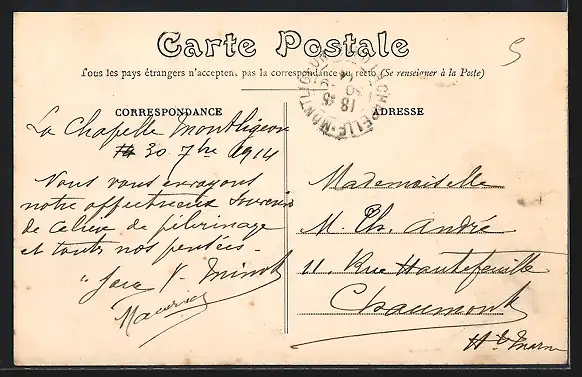 Carte Postale
Tous les pays étrangers n'acceptent pas la correspondance au recto (Se renseigner à la Poste)
5
CORRESPONDANCE
La Chapelle Montligeon
30 7bre 1914
Nous vous envoyons
notre affectueux souvenir
de ce lieu de pèlerinage
et toutes nos pensées -
Maurice
ADRESSE
Mademoiselle
M. Th. André
11 Rue Hautefeuille
Chaumont
Hte Marne
CHAPELLE-MONTLIGEON
18 45
30